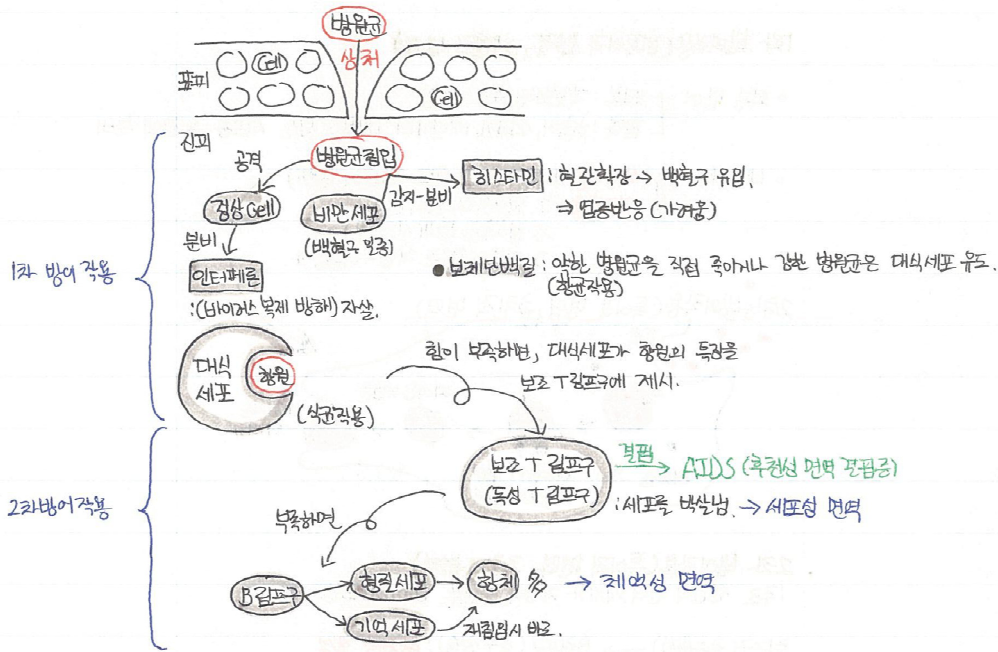 병원균
상처
표피
Cell
Cell
진피
병원균침입
공격
정상 Cell
비만세포
(백혈구 일종)
감지-분비
히스타민 : 혈관확장 → 백혈구 유입.
⇒ 염증반응 (가려움)
분비
인터페론
:(바이러스 복제 방해) 자살.
1차 방어 작용
● 보체단백질 : 약한 병원균을 직접 죽이거나 강한 병원균은 대식세포 유도.
(항균작용)
대식
세포
항원
(식균작용)
힘이 부족하면, 대식세포가 항원의 특징을
보조 T림프구에 제시.
2차방어작용
보조 T 림프구
(독성 T 림프구)
결핍
AIDS (후천성 면역 결핍증)
:세포를 박살냄. → 세포성 면역
부족하면
B림프구
형질세포
항체 多 → 체액성 면역
기억세포
재침입시 바로.